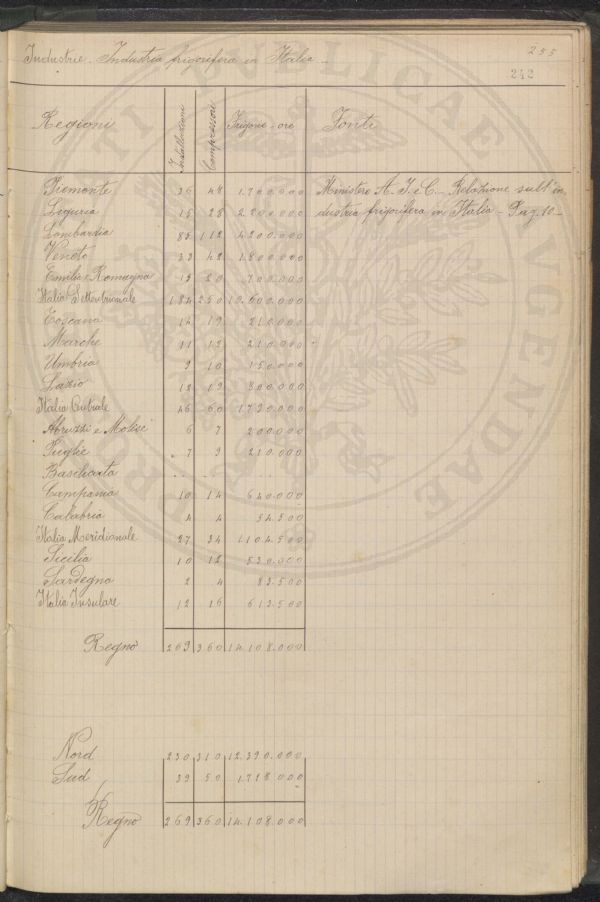 255
Industrie - Industria frigorifera in Italia -
242
Regioni Installazioni Compressori Frigorie-ore Fonti
Piemonte 36 48 1.700.000 Ministero A. I. e C. - Relazione sull'in
Liguria 15 28 2.200.000 dustria frigorifera in Italia - Pag. 10 -
Lombardia 85 112 4.200.000
Veneto 33 42 1.800.000
Emilia e Romagna 15 20 700.000
Italia Settentrionale 184 250 10.600.000
Toscana 14 19 210.000
Marche 11 12 210.000
Umbria 9 10 150.000
Lazio 12 19 800.000
Italia Centrale 46 60 1790.000
Abruzzi e Molise 6 7 200.000
Puglie 7 9 210.000
Basilicata .. ..
Campania 10 14 640.000
Calabria 4 4 54.500
Italia Meridionale 27 34 1104.500
Sicilia 10 12 530.000
Sardegna 2 4 83.500
Italia Insulare 12 16 613.500
Regno 269 360 14.108.000
Nord 230 310 12.390.000
Sud 39 50 1718.000
Regno 269 360 14.108.000